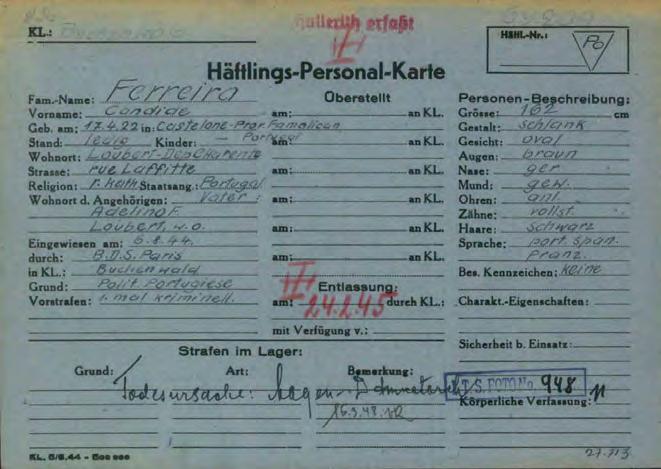 Hollerith erfaßt
KL.: Buchenwald
Häftl.-Nr.:
Po
Häftlings-Personal-Karte
Fam.-Name: Ferreira
Vorname: Candide
Geb. am: 17.4.22 in: Castelone-Prov. Famalican
Stand: ledig Kinder: — Portugal
Wohnort: Loubert-Dep. Charente
Strasse: rue Laffitte
Religion: r. kath. Staatsang.: Portugal
Wohnort d. Angehörigen: Vater:
Adelino F.
Loubert, w.o.
Eingewiesen am: 6.8.44.
durch: B.D.S. Paris
in KL.: Buchenwald
Grund: Polit. Portugiese
Vorstrafen: 1. mal kriminell.
Überstellt
am: an KL.
am: an KL.
am: an KL.
am: an KL.
am: an KL.
am: an KL.
Entlassung:
am: 24.2.45 durch KL.:
mit Verfügung v.:
Personen-Beschreibung:
Grösse: 162 cm
Gestalt: schlank
Gesicht: oval
Augen: braun
Nase: ger.
Mund: gew.
Ohren: anl.
Zähne: vollst.
Haare: schwarz
Sprache: port. span.
franz.
Bes. Kennzeichen: keine
Charakt.-Eigenschaften:
Sicherheit b. Einsatz:
Körperliche Verfassung:
Strafen im Lager:
Grund: Art: Bemerkung:
Todesursache: Magen-
I.T.S. FOTO No. 948
KL. 5/6.44 - 500 000